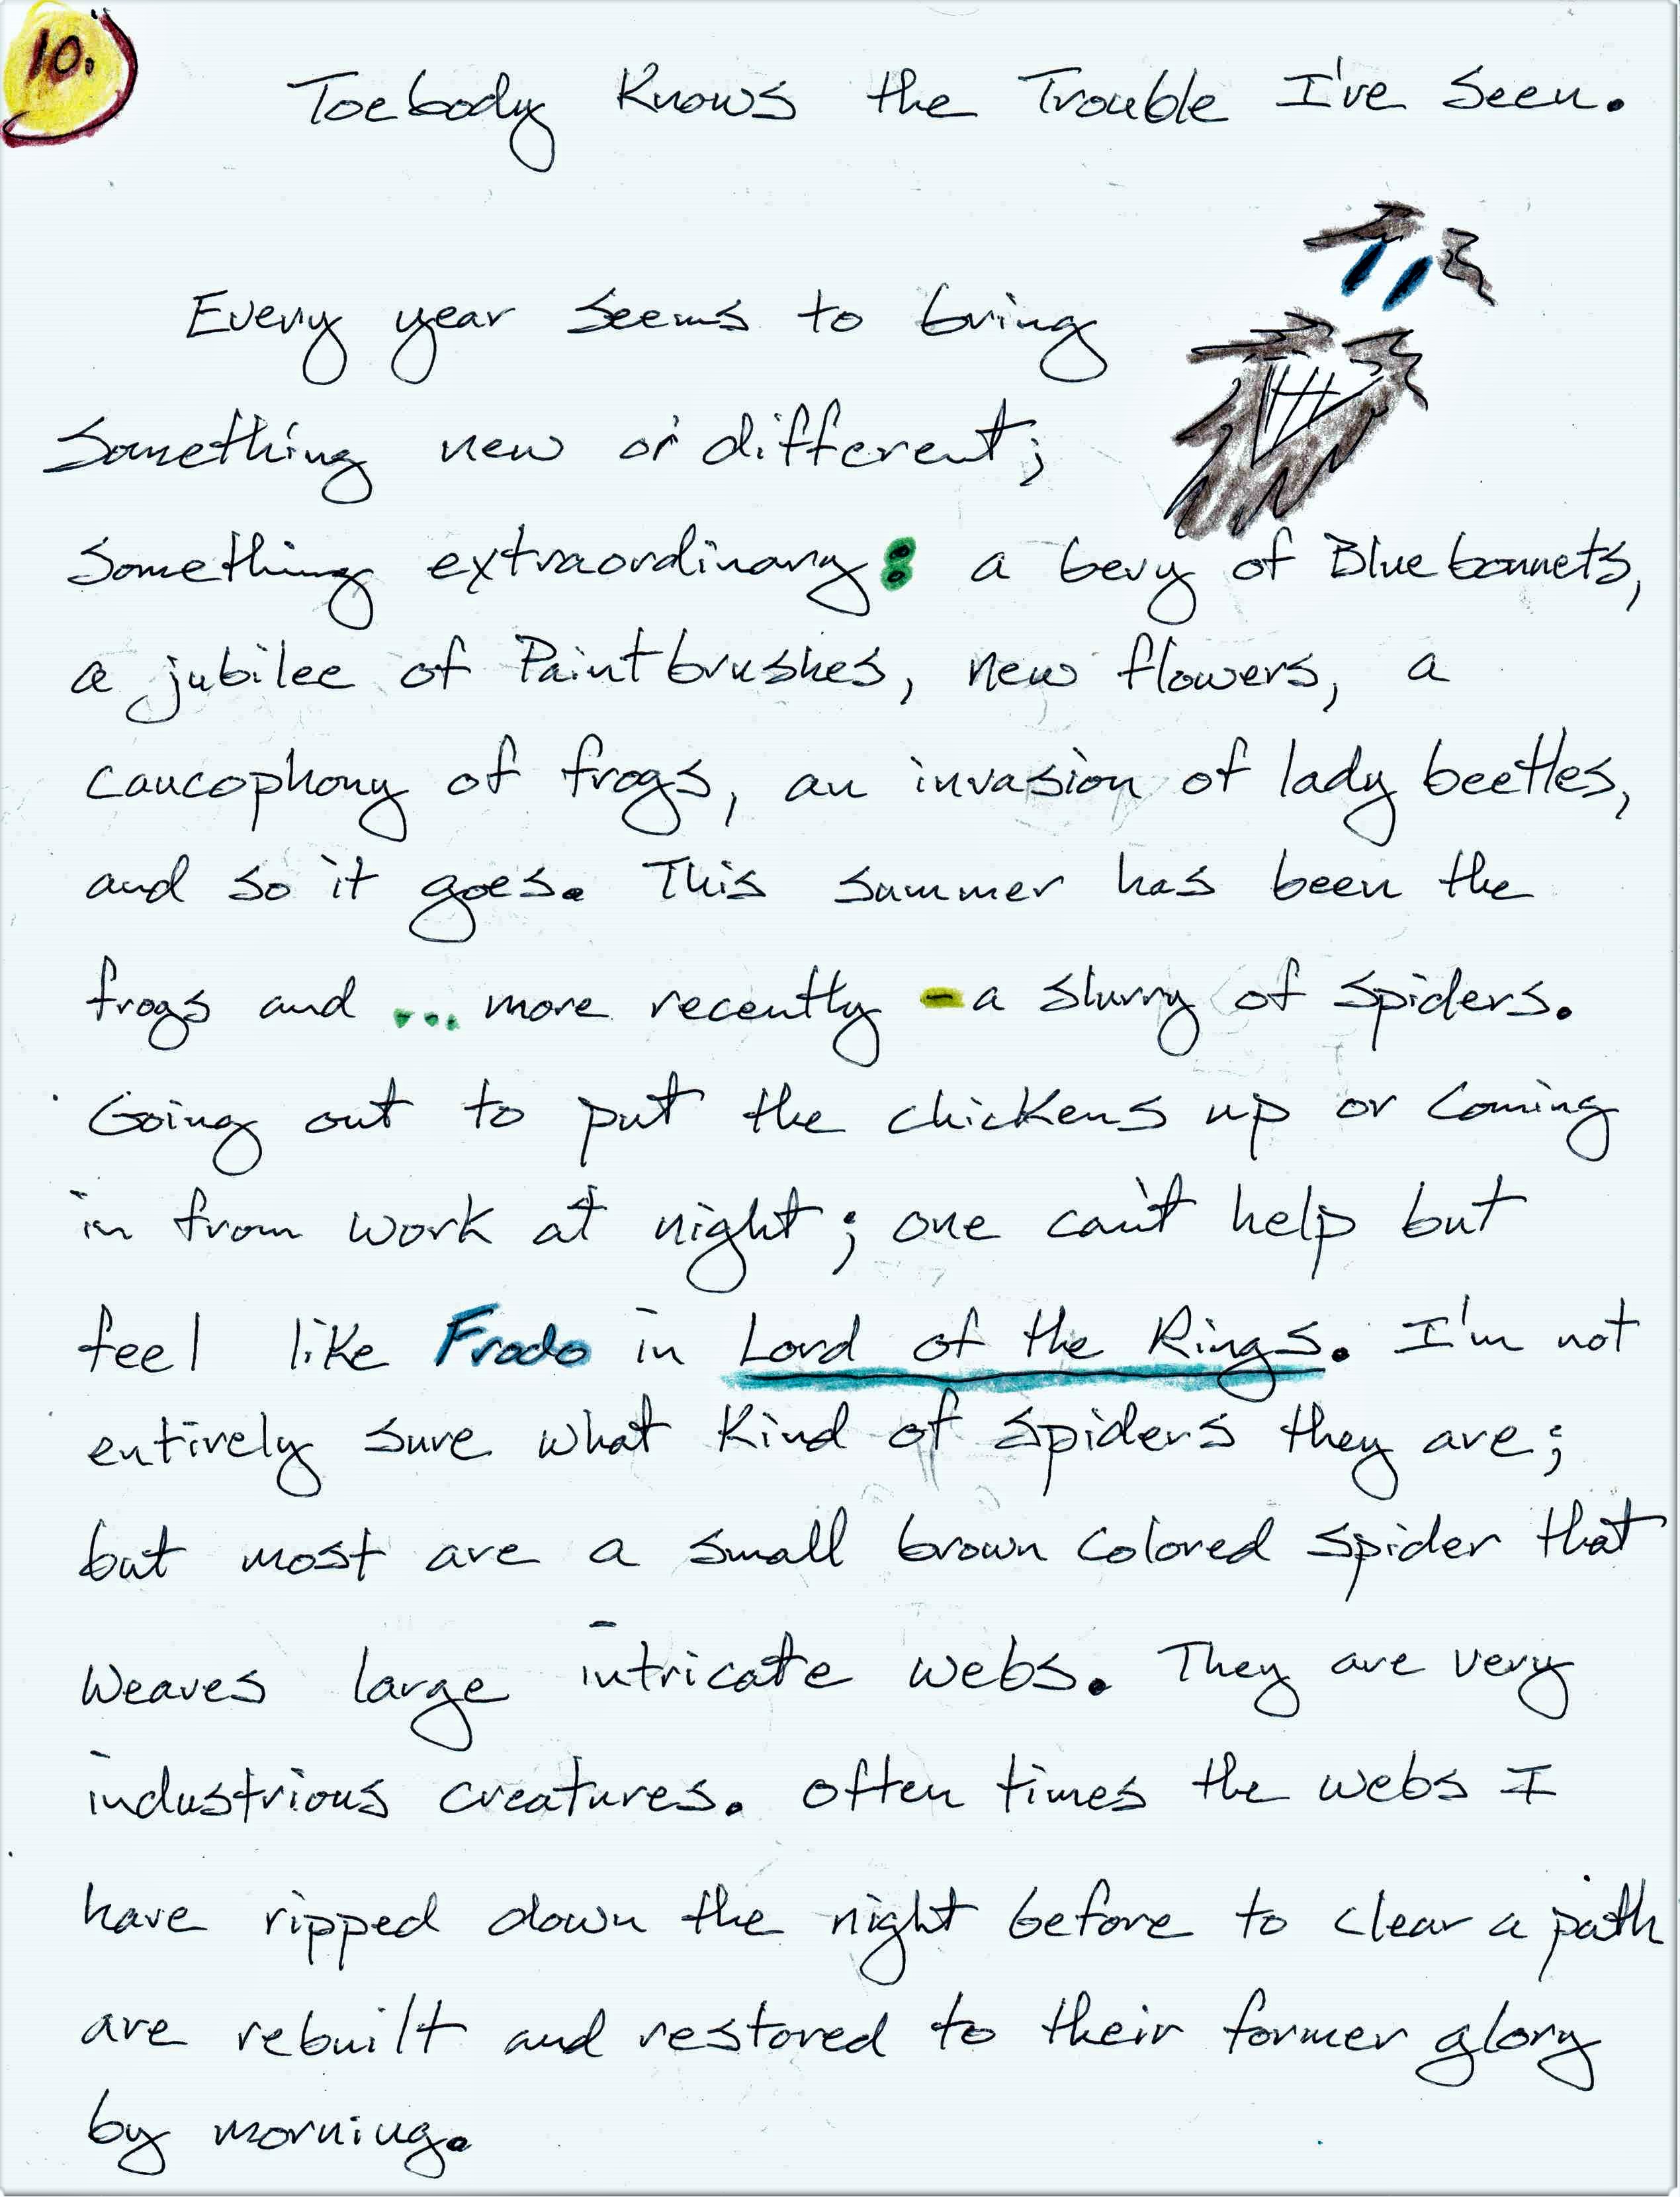 10.
Toebody Knows the Trouble I've Seen.
Every year seems to bring
something new or different;
something extraordinary: a bevy of Bluebonnets,
a jubilee of Paintbrushes, new flowers, a
caucophony of frogs, an invasion of lady beetles,
and so it goes. This summer has been the
frogs and ... more recently - a slurry of spiders.
Going out to put the chickens up or coming
in from work at night; one can't help but
feel like Frodo in Lord of the Rings. I'm not
entirely sure what kind of spiders they are;
but most are a small brown colored spider that
weaves large intricate webs. They are very
industrious creatures. Often times the webs I
have ripped down the night before to clear a path
are rebuilt and restored to their former glory
by morning.